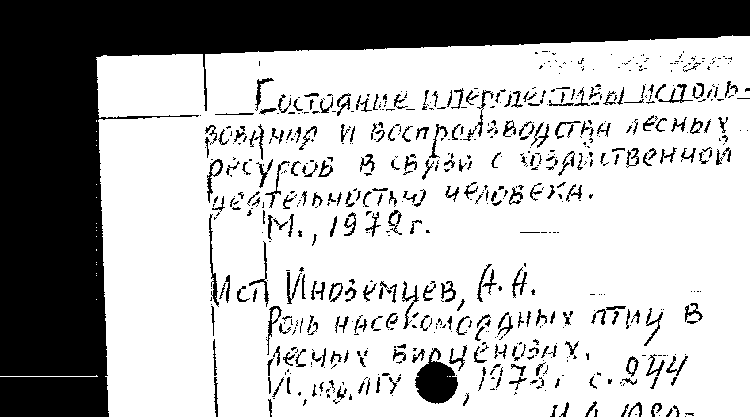 Состояние и перспективы исполь-
зования и воспроизводства лесных
ресурсов в связи с хозяйственной
деятельностью человека.
М., 1972г.
Исп Иноземцев, А.А.
Роль насекомоядных птиц в
лесных биоценозах.
Л., изд. ЛГУ, 1978г с. 244